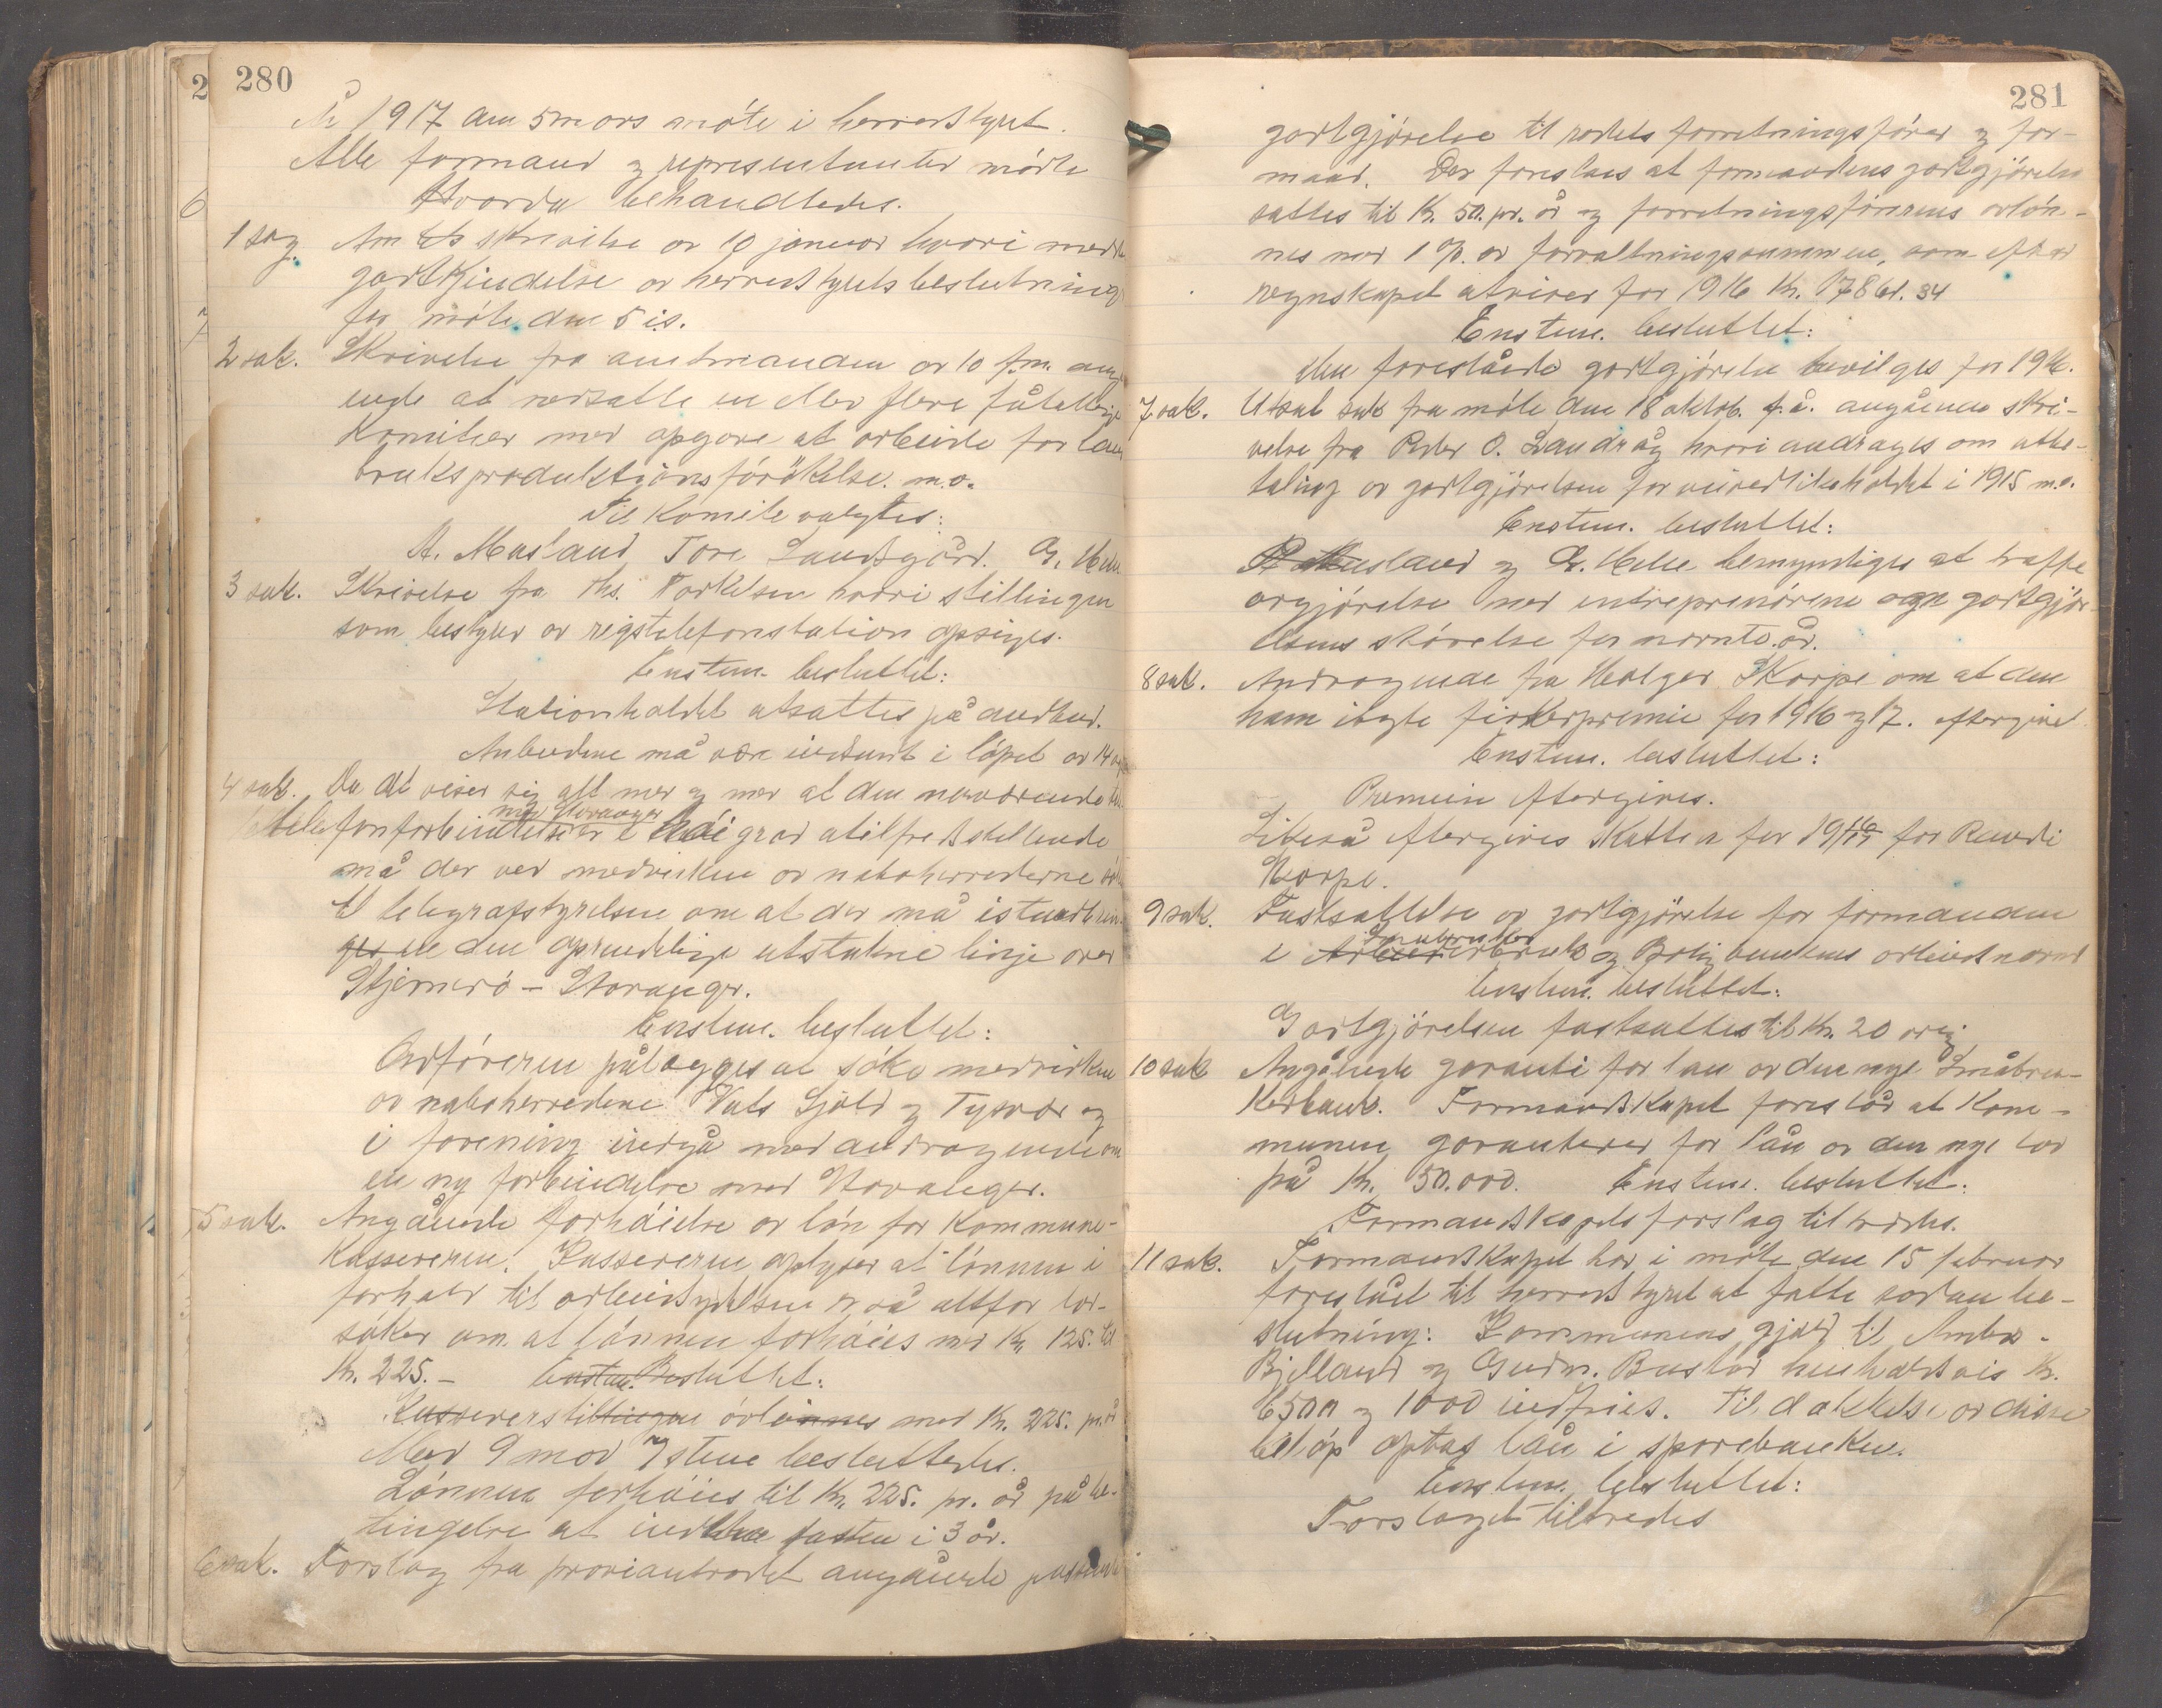 280
År 1917 den 5 mars møte i herredstyret.
Alle formænd og representanter mødte
Hvorda behandledes.
1 sag. Amtsskrivelse av 10 januar hvori medde
godkjendelse av herredstyrets beslutninger
for møte den 5 is.
2 sak. Skrivelse fra amtmanden av 10 f.m. ang
ende at nedsætte en eller flere fåtallige
Komiteer med opgave at arbeide for land
bruksproduktsjons förökelse. m.v.
Til Komite valgtes:
A. Mæsland Tore Landsgård. G. Helle
3 sak. Skrivelse fra Ths. Torkelsen hvori stillingen
som bestyrer av rigstelefonstation opsiges.
Enstem. besluttet:
Stationholdet utsættes på anbud.
Anbudene må være indsendt i löpet av 14 dage
4 sak. Da det viser sig alt mer og mer at den nuværende
med Stavanger
telefonforbindelse er i höi grad utilfredsstillende
må der ved medvirken av naboherrederne
til telegrafstyrelsen om at der må istandbrin
ges en den oprindelige utstukne linje over
Stjernerö – Stavanger.
Enstem. besluttet:
Ordföreren pålægges at söke medvirken
av naboherredene Vats Sjold og Tysvær og
i forening indgå med andragende om
en ny forbindelse med Stavanger.
5 sak. Angående forhöielse av lön for Kommune-
Kassereren. Kassereren oplyser at lönnen i
forhold til arbeidsydelsen er så altfor lav-
söker om at lönnen forhöies med Kr. 125. til
Kr. 225.– Enstem. Besluttet:
Kassererstillingen avlönnes med Kr. 225. pr. år
Med 9 mod 7 stem. besluttedes.
Lönnen forhöies til Kr. 225. pr. år på be-
tingelse at indeha posten i 3 år.
6 sak. Forslag fra proviantrådet angående passende
281
godtgjörelse til rådets forretningsförer og for-
mand. Der foreslaes at formandens godtgjörelse
sættes til Kr. 50. pr. år og forretningsförerens avlön-
nes med 1 % av forvaltningssummene, som efter
regnskapet utviser for 1916 Kr. 17861.34
Enstem. besluttet:
Den foreslåede godtgjörelse bevilges for 1916.
7 sak. Utsat sak fra möte den 18 oktob. f.å. angående skri-
velse fra Peder O. Landråg hvori andrages om utbe-
taling av godtgjörelsen for veivedlikeholdet i 1915 m.v.
Enstem. besluttet:
P. Mæsland og G. Helle bemyndiges at træffe
avgjörelse med entreprenörene om godtgjör-
elsens störrelse for nævnte år.
8 sak. Andragende fra Holger Skorpe om at den
ham ilagte fisker premie for 1916 og 17. eftergives
Enstem. besluttet:
Premien eftergives.
Likeså eftergives Skatten for 1916/17 for Randi
Skorpe.
9 sak. Fastsættelse av godtgjörelse for formanden
Småbruker
i Arbeiderbruk og Boligbankens arbeidsnævnd
Enstem. besluttet:
Godtgjörelsen fastsættes til Kr. 20 årlig
10 sak Angående garanti for lån av den nye Småbru-
Kerbank. Formandskapet foreslår at Kom-
munen garanterer for lån av den nye lov
på Kr. 50.000. Enstem. besluttet:
Formandskapets forslag tiltrædes.
11 sak. Formandskapet har i möte den 15 februar
foreslået til herredstyret at fatte sådan be-
slutning: Kommunens gjæld til Ambr.
Bjelland og Gudm. Bastad henholdsvis Kr.
6500 og 1000 indfries. Til dækkelse av disse
belöp optas lån i sparebanken.
Enstem. besluttet:
Forslaget tiltrædes